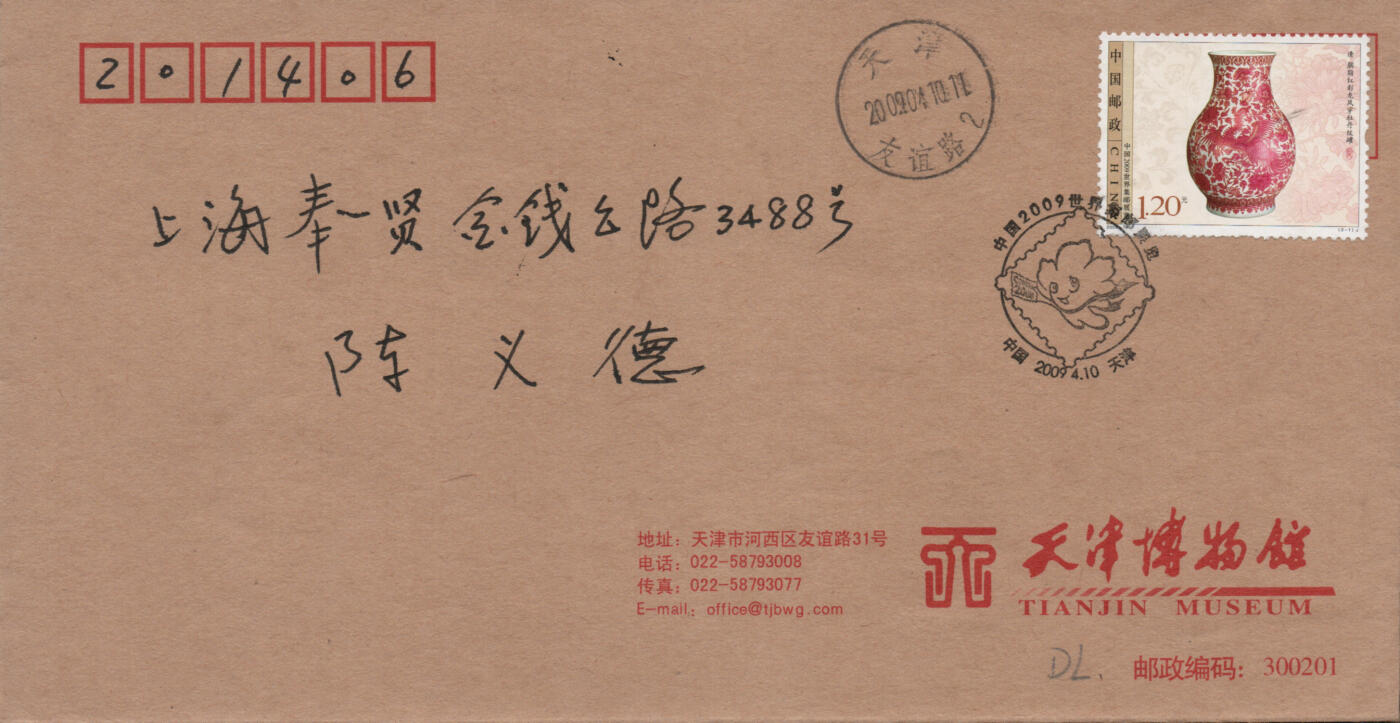 201406
天津
2009.04.10.11
友谊路 2
中国邮政 CHINA
中国2009世界集邮展览
1.20元
清·胭脂红彩龙凤穿牡丹纹罐
(2-1)J
中国2009世界集邮展览
中国 2009.4.10 天津
上海奉贤金钱公路3488号
陈义德
地址：天津市河西区友谊路31号
电话：022-58793008
传真：022-58793077
E-mail：office@tjbwg.com
天津博物馆
TIANJIN MUSEUM
DL.
邮政编码：300201